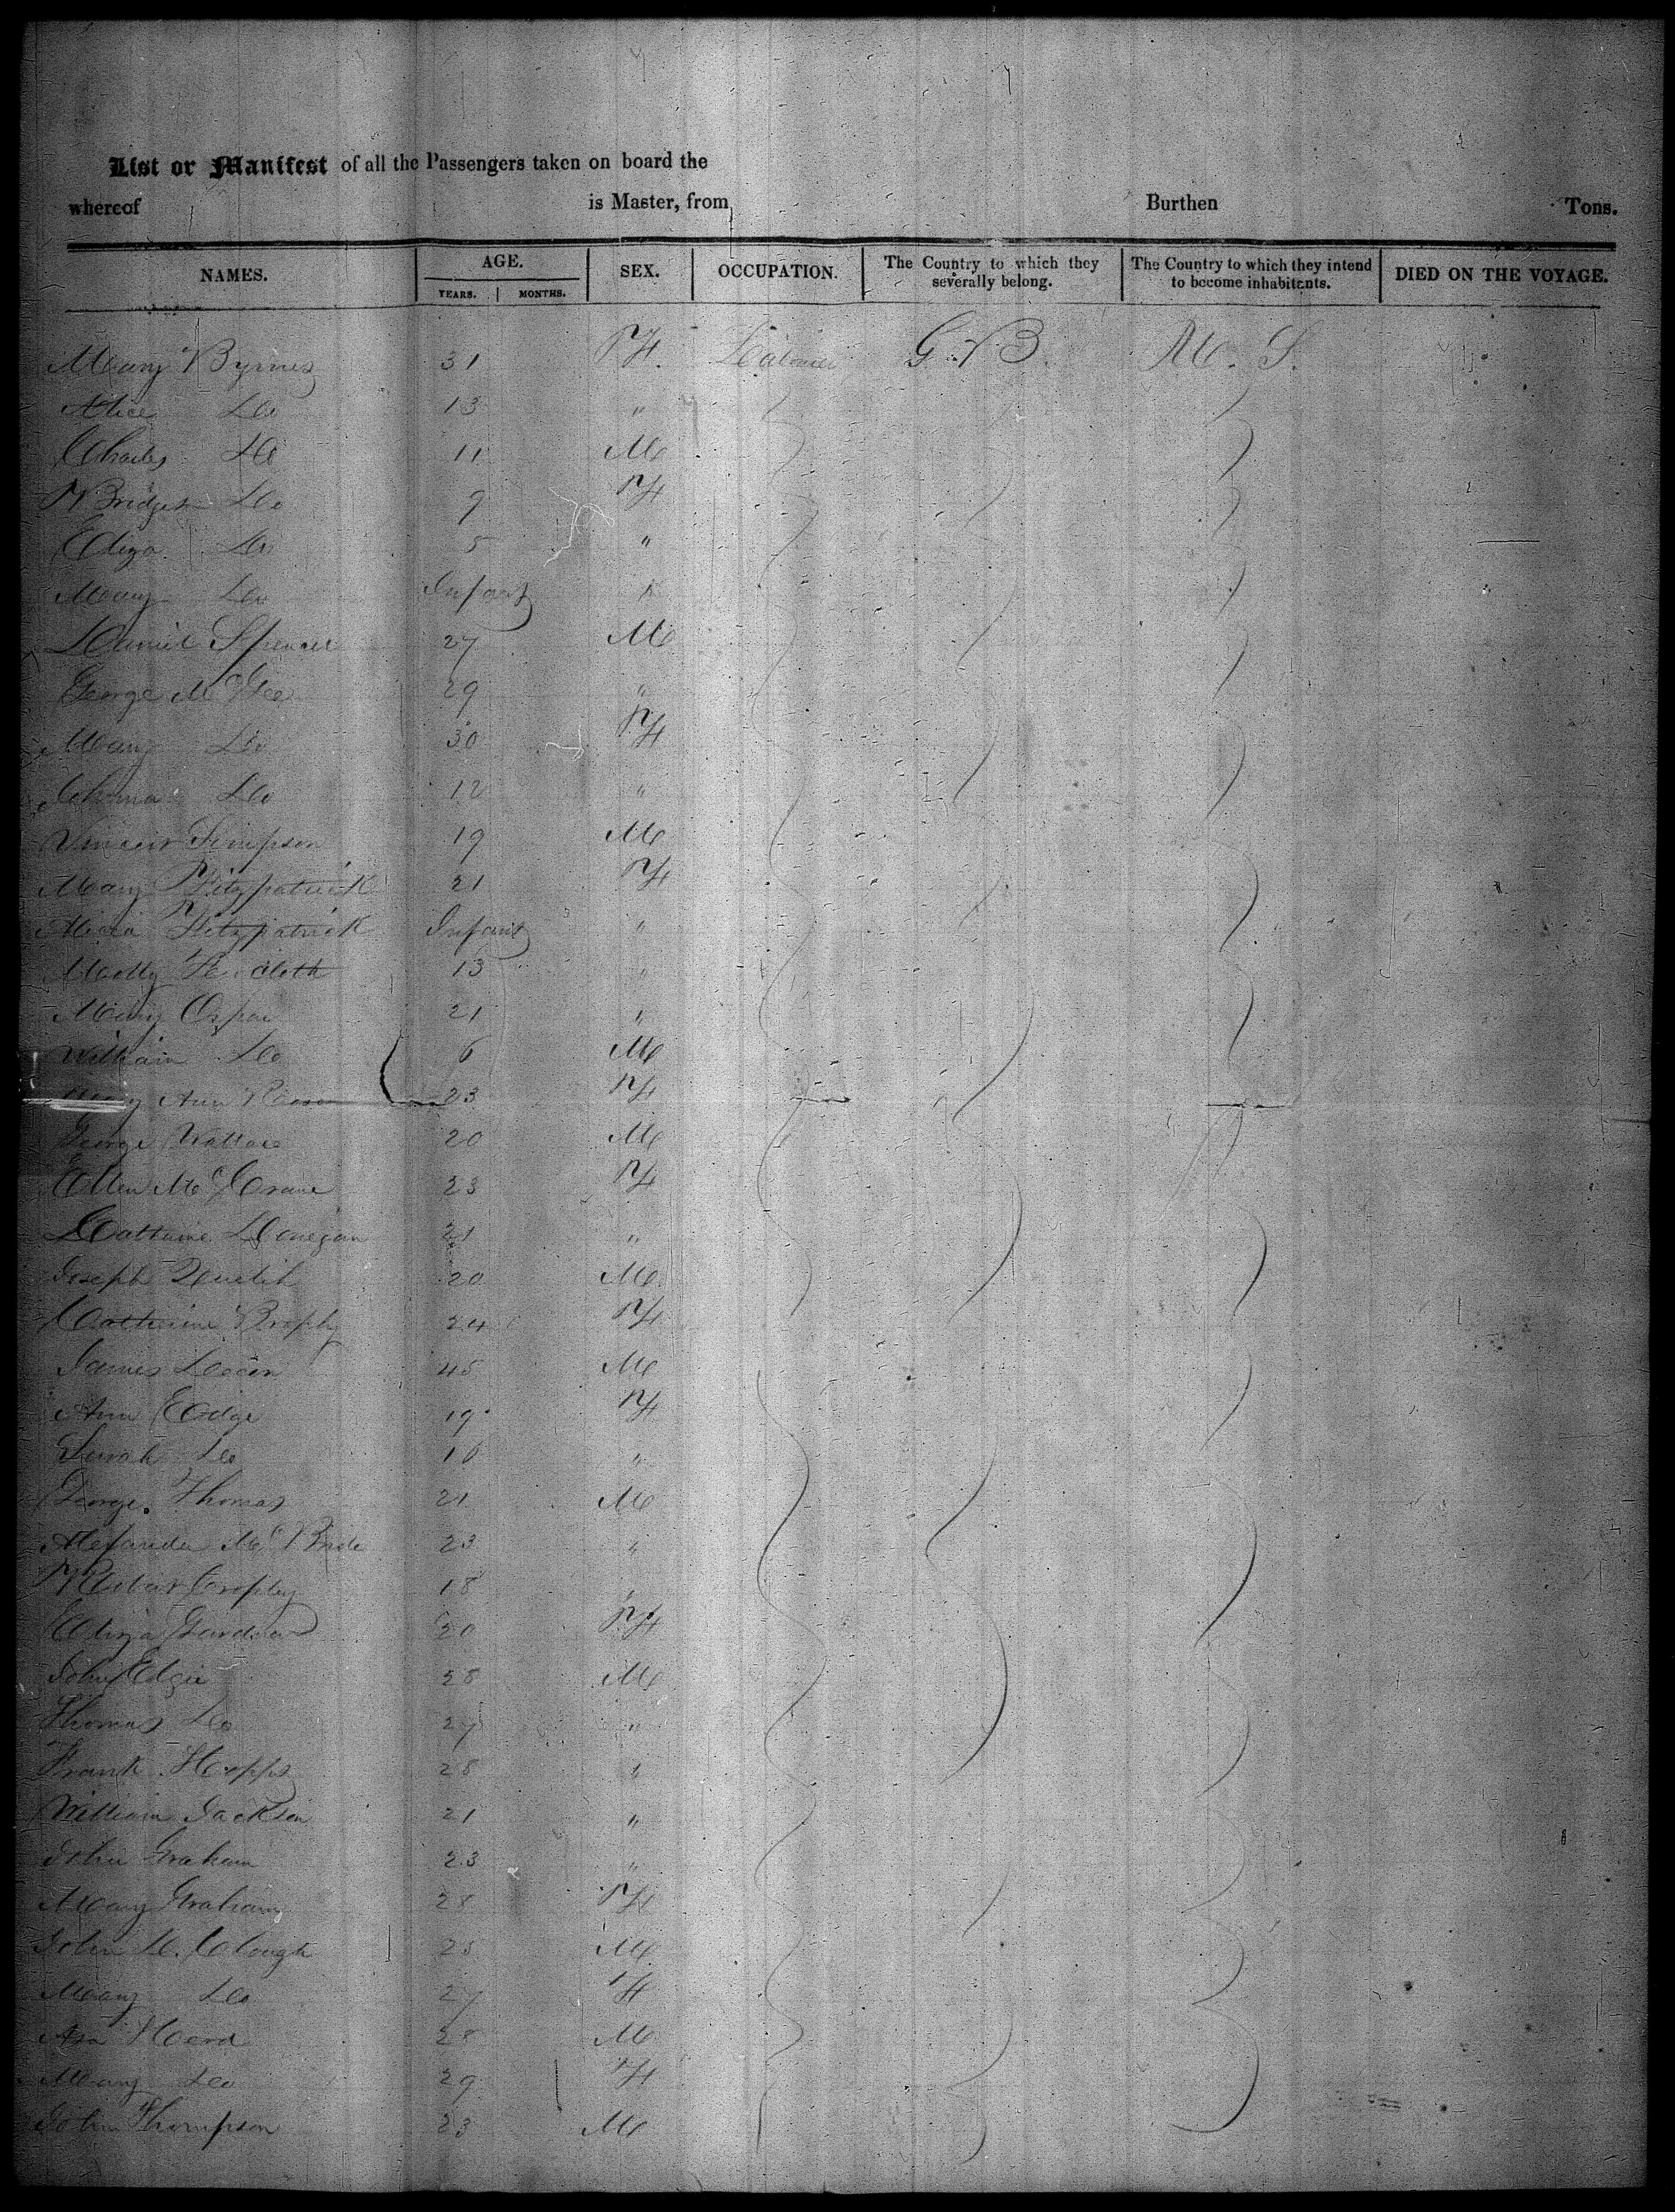 List or Manifest of all the Passengers taken on board the
whereof is Master, from Burthen Tons.
NAMES. AGE. SEX. OCCUPATION. The Country to which they severally belong. The Country to which they intend to become inhabitants. DIED ON THE VOYAGE.
YEARS. MONTHS.
Mary Byrnes 31 F. Labourer G. B. U. S.
Alice Do 13 "
Charles Do 11 M
Bridget Do 9 F
Eliza Do 5 "
Mary Do Infant "
Daniel Spencer 27 M
George McGee 29 "
Mary Do 30 F
Johanna Do 12 "
Vincent Simpson 19 M
Mary Fitzpatrick 21 F
Fitzpatrick Infant "
13 "
Mary 21 "
William Do 6 M
Mary Ann 23 F
George Wallace 20 M
Ellen McCrane 23 F
Donegan 21 "
Joseph 20 M
Catherine Brophy 24 F
James 45 M
Ann Edge 19 F
Sarah Do 16 "
George Thomas 21 M
Alexander McBride 23 "
Cropley 18 "
Eliza Gardner 20 F
John Edge 28 M
Thomas Do 27 "
Frank Hopps 28 "
William Jackson 21 "
John Graham 23 "
Mary Graham 28 F
John Clough 25 M
Mary Do 27 F
Asa Heard 28 M
Mary Do 29 F
John Thompson 23 M